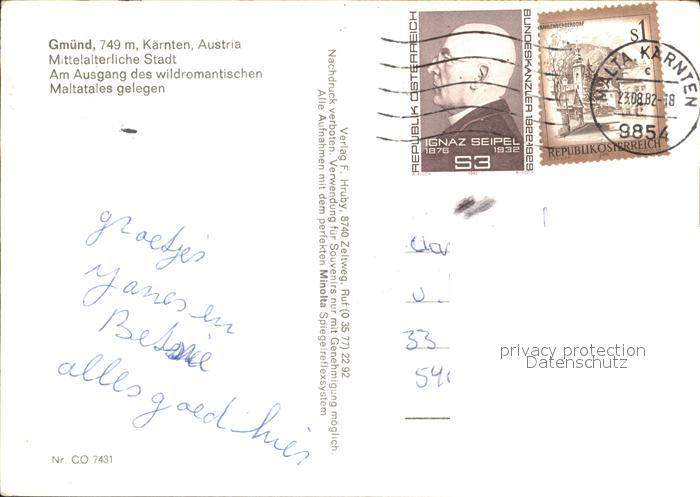 Gmünd, 749 m, Kärnten, Austria
Mittelalterliche Stadt
Am Ausgang des wildromantischen
Maltatales gelegen
groetjes
Yanes en
alles goed hier
Nr. CO 7431
Verlag F. Hruby, 8740 Zeltweg, Ruf (0 35 77) 22 92
Nachdruck verboten. Verwendung für Souvenirs nur mit Genehmigung möglich.
Alle Aufnahmen mit dem perfekten Minolta Spiegelreflexsystem
REPUBLIK ÖSTERREICH
BUNDESKANZLER 1922-1929
IGNAZ SEIPEL
1876 1932
S3
S1
REPUBLIK ÖSTERREICH
MALTA, KÄRNTEN
c
23.08.82-18
9854
33
privacy protection
Datenschutz